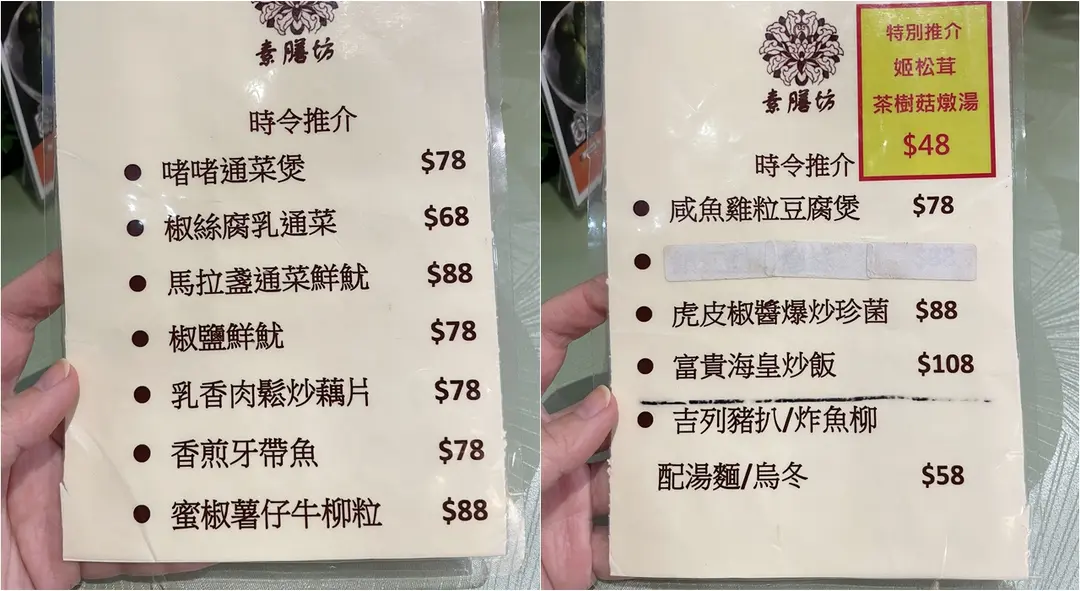 素膳坊
時令推介
● 啫啫通菜煲 $78
● 椒絲腐乳通菜 $68
● 馬拉盞通菜鮮魷 $88
● 椒鹽鮮魷 $78
● 乳香肉鬆炒藕片 $78
● 香煎牙帶魚 $78
● 蜜椒薯仔牛柳粒 $88
素膳坊
特別推介
姬松茸
茶樹菇燉湯
$48
時令推介
● 咸魚雞粒豆腐煲 $78
●
● 虎皮椒醬爆炒珍菌 $88
● 富貴海皇炒飯 $108
● 吉列豬扒/炸魚柳
配湯麵/烏冬 $58